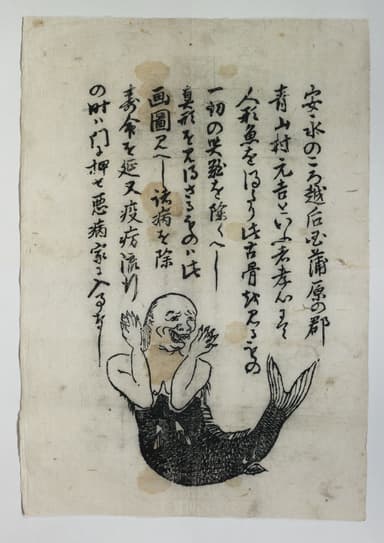 安永のころ越后国蒲原の郡
青山村元吉といふ者孝心にて
人形魚を得たり此古骨を見るもの
一切の災難を除くへし
真形を見得さるものハ此
画圖見へし諸病を除
寿命を延又疫病流行
の时ハ门に押せ悪病家に入る事なし